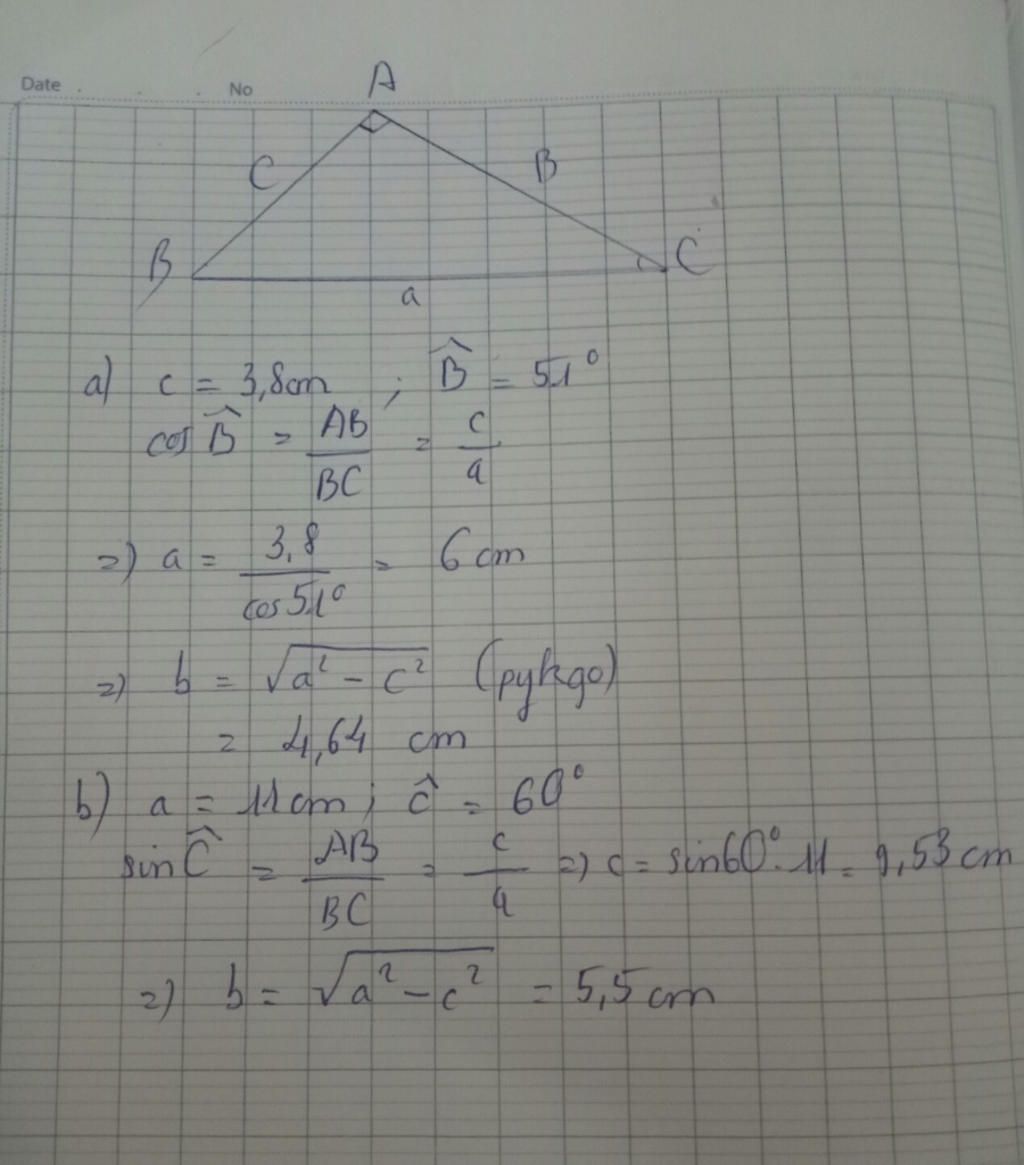 Date . . . No
A
C B
B C
a
a) c = 3,8cm ; B̂ = 51°
cos B̂ = AB/BC = c/a
=) a = 3,8/cos51° = 6 cm
=) b = √(a² - c²) (pytago)
= 4,64 cm
b) a = 11cm ; ĉ = 60°
sin Ĉ = AB/BC = c/a =) c = sin60°. 11 = 9,53 cm
=) b = √(a² - c²) = 5,5 cm